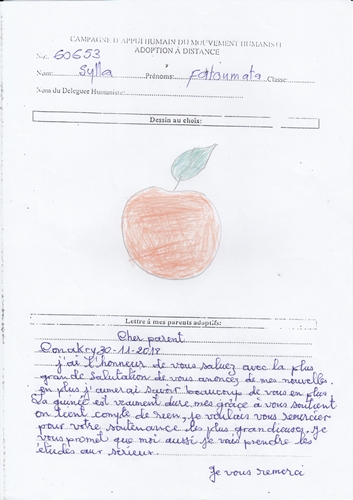 CAMPAGNE D'APPUI HUMAIN DU MOUVEMENT HUMANISTE
ADOPTION À DISTANCE
N°: 60653
Nom: Sylla Prénoms: Fatoumata Classe:
Nom du Deleguer Humaniste:
Dessin au choix:
Lettre à mes parents adoptifs:
Cher parent
Conakry 20-11-2018
j'ai l'honneur de vous saluez avec la plus
grande Salutation de vous anoncez de mes nouvelles.
en plus j'aumerai savoir beaucoup de vous en plus
La guinée est vraiment dure mes grâce à vous soutient
on tient compte de rien, je voulais vous remercier
pour votre soutenance les plus grandieuses. Je
vous promet que moi aussi je vais prendre les
études aux sérieux.
Je vous remerci